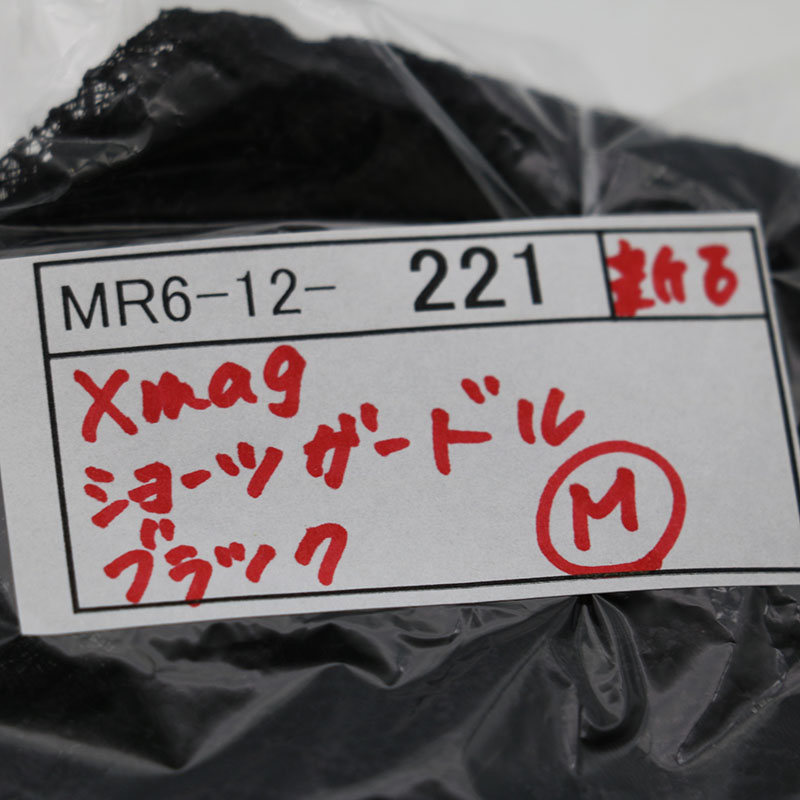 MR6-12- 221
Xmag
ショーツガードル
ブラック
M